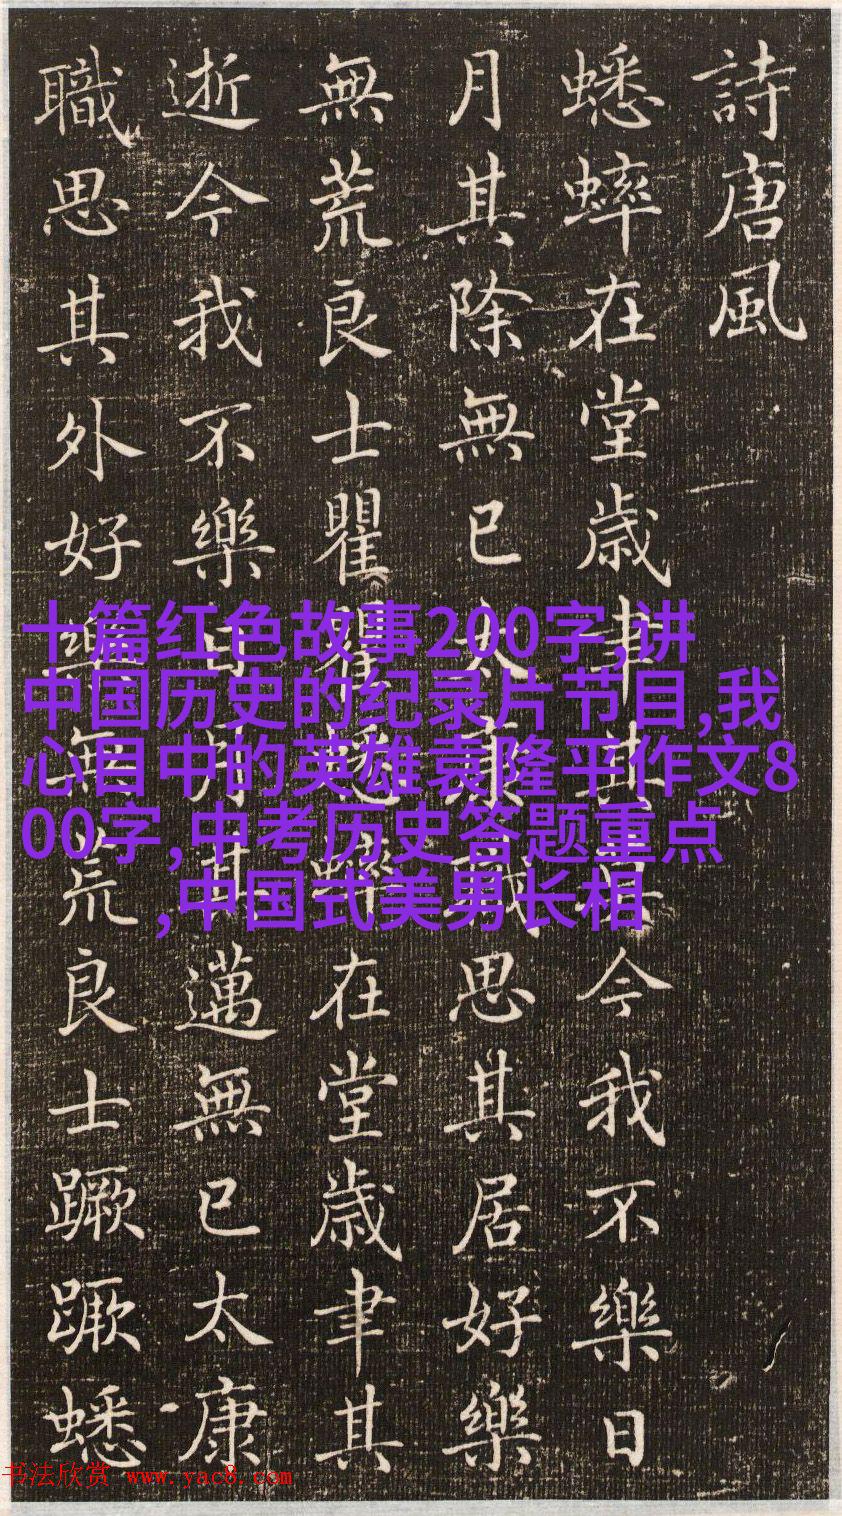 詩唐風
蟋蟀在堂歲聿其莫今我不樂日
月其除無已太康職思其居好樂
無荒良士瞿瞿蟋蟀在堂歲聿其
逝今我不樂日月其邁無已太康
職思其外好樂無荒良士蹶蹶蟋
十篇红色故事200字,讲
中国历史的纪录片节目,我
心目中的英雄袁隆平作文8
00字,中考历史答题重点
,中国式美男长相
书法欣赏 www.yac8.com